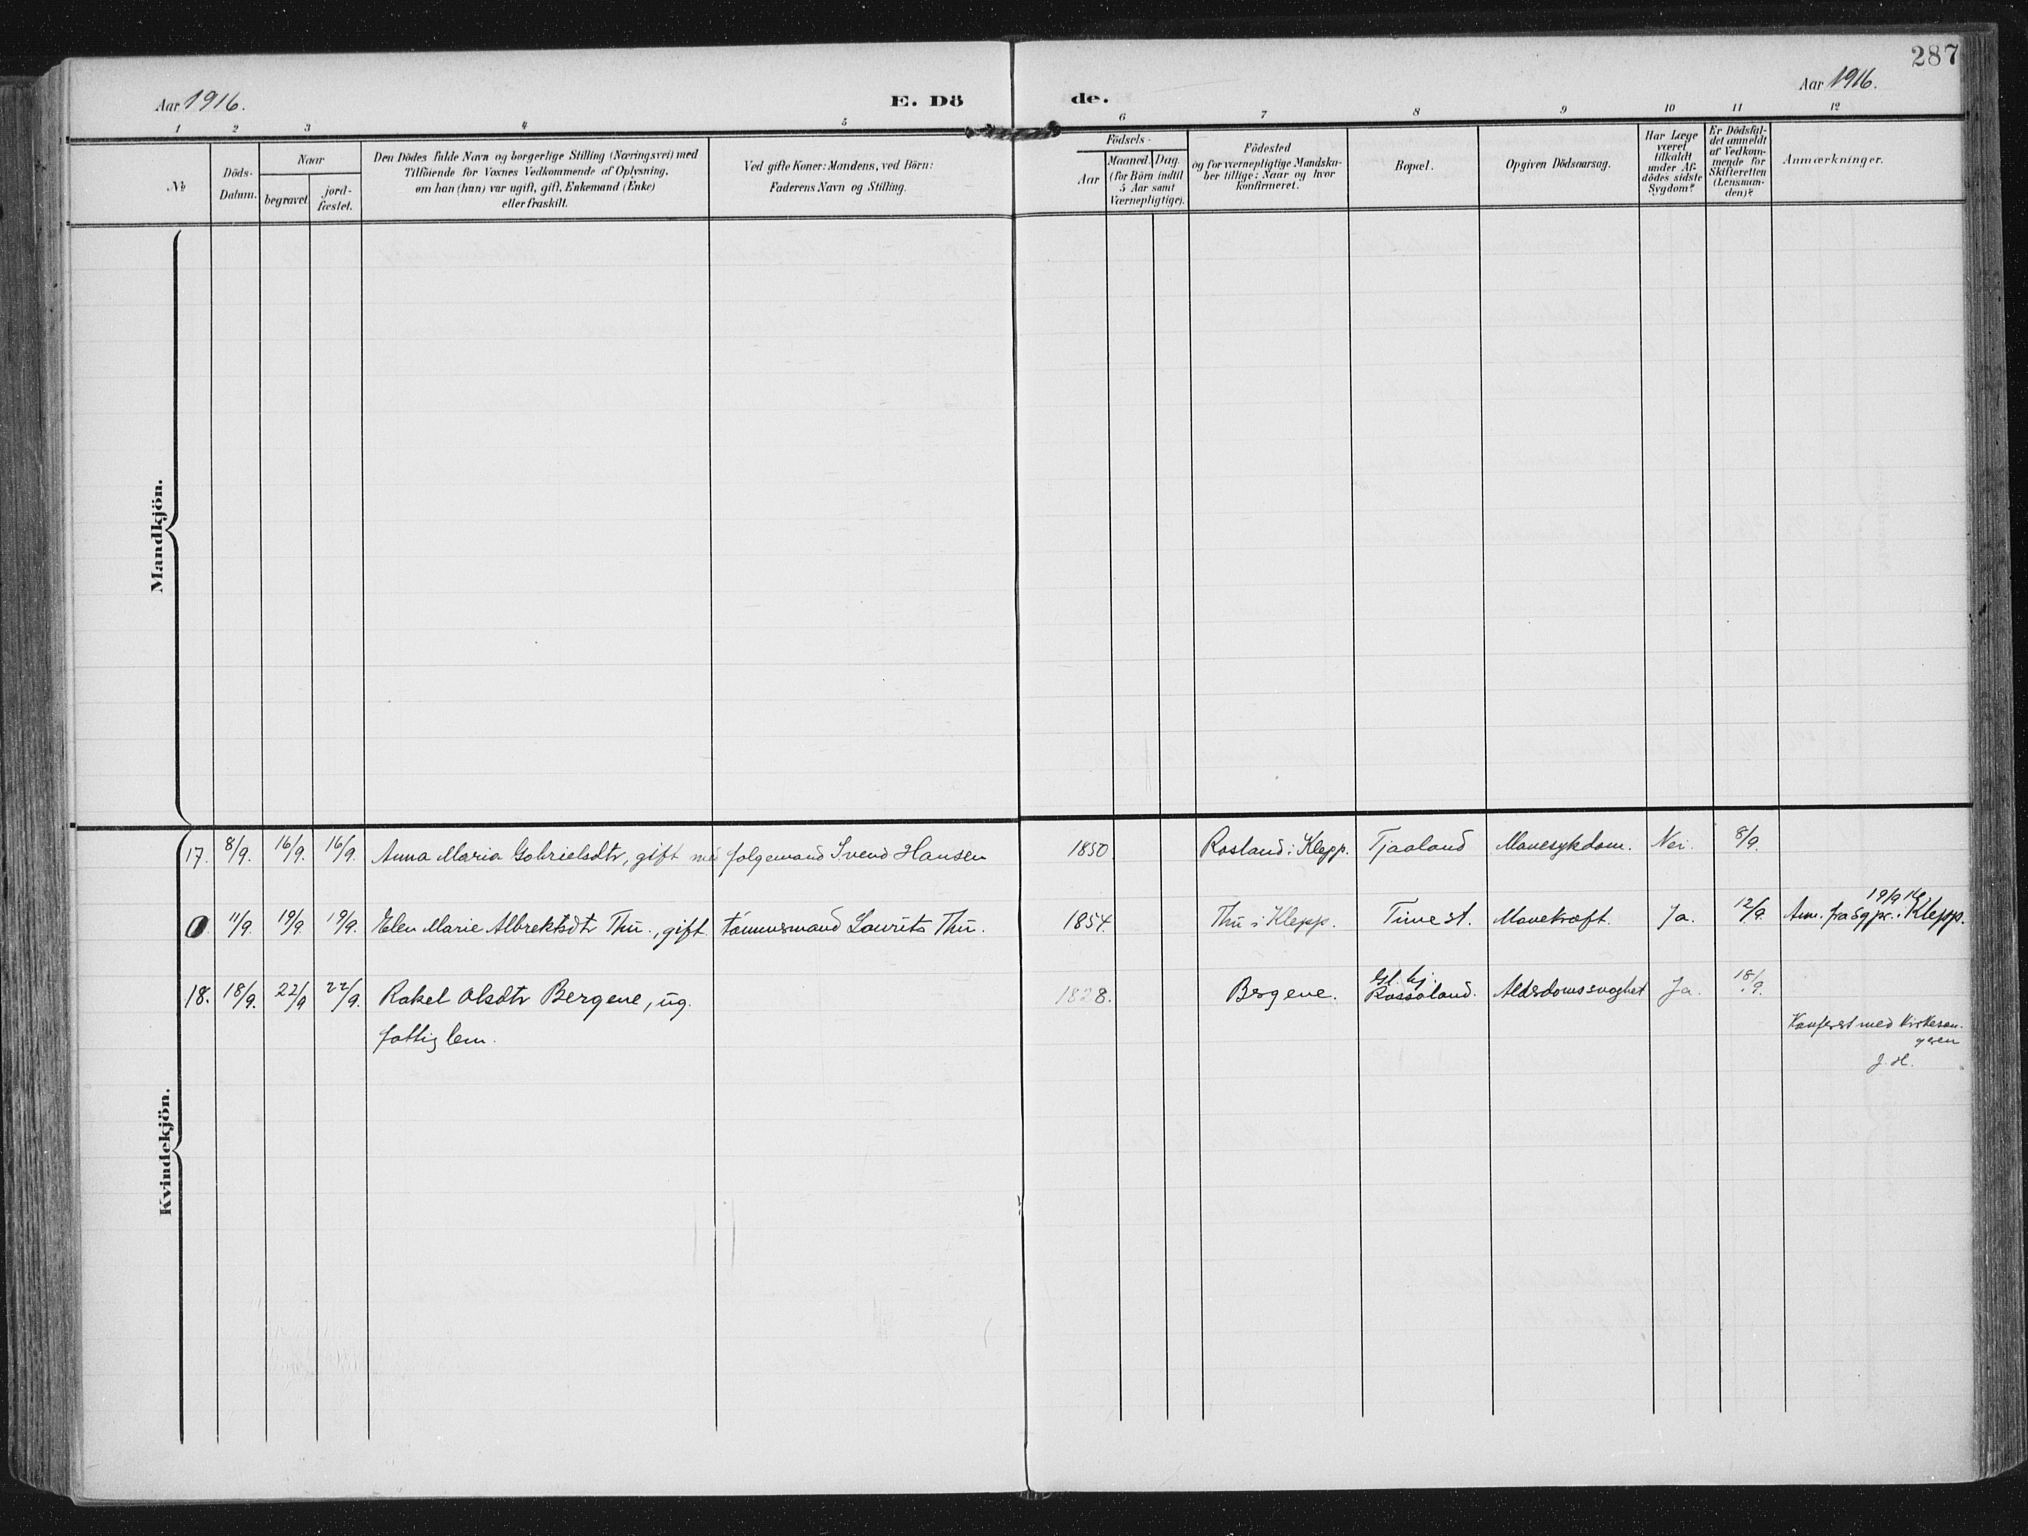 287
Aar 1916.
E. Dö
de.
Aar 1916.
1 2 3 4 5 6 7 8 9 10 11 12
No
Döds-
Datum.
Naar
begravet.
jord-
fæstet.
Den Dödes fulde Navn og borgerlige Stilling (Næringsvei) med
Tilföiende for Voxnes Vedkommende af Oplysning,
om han (hun) var ugift, gift, Enkemand (Enke)
eller fraskilt.
Ved gifte Koner: Mandens, ved Börn:
Faderens Navn og Stilling.
Födsels-
Aar
Maaned. Dag.
(for Börn indtil
5 Aar samt
Værnepligtige).
Födested
og for værnepligtige Mandska-
ber tillige: Naar og hvor
konfirmeret.
Bopæl.
Opgiven Dödsaarsag.
Har Læge
været
tilkaldt
under Af-
dödes sidste
Sygdom?
Er Dödsfal-
det anmeldt
af Vedkom-
mende for
Skifteretten
(Lensman-
den)?
Anmærkninger.
Mandkjön.
Kvindekjön.
17. 8/9. 16/9. 16/9. Anna Maria Gabrielsdtr, gift med folgemand Svend Hansen 1850. Rosland i Klepp. Tjaaland Mavesykdom. Nei. 8/9.
0 11/9. 19/9. 19/9. Elen Marie Albrektsdtr Thu., gift tømmermand Laurits Thu. 1854. Thu i Klepp. Time st. Mavekræft. Ja. 12/9. Anm. fra sgpr. i Klepp. 19/9 16.
18. 18/9. 22/9. 22/9. Rakel Olsdtr Bergene, ug. 1828. Bergene. Rossaland. Alderdomssvaghet Ja. 18/9.
fattiglem.
Konferert med kirkesan-
geren
J. H.